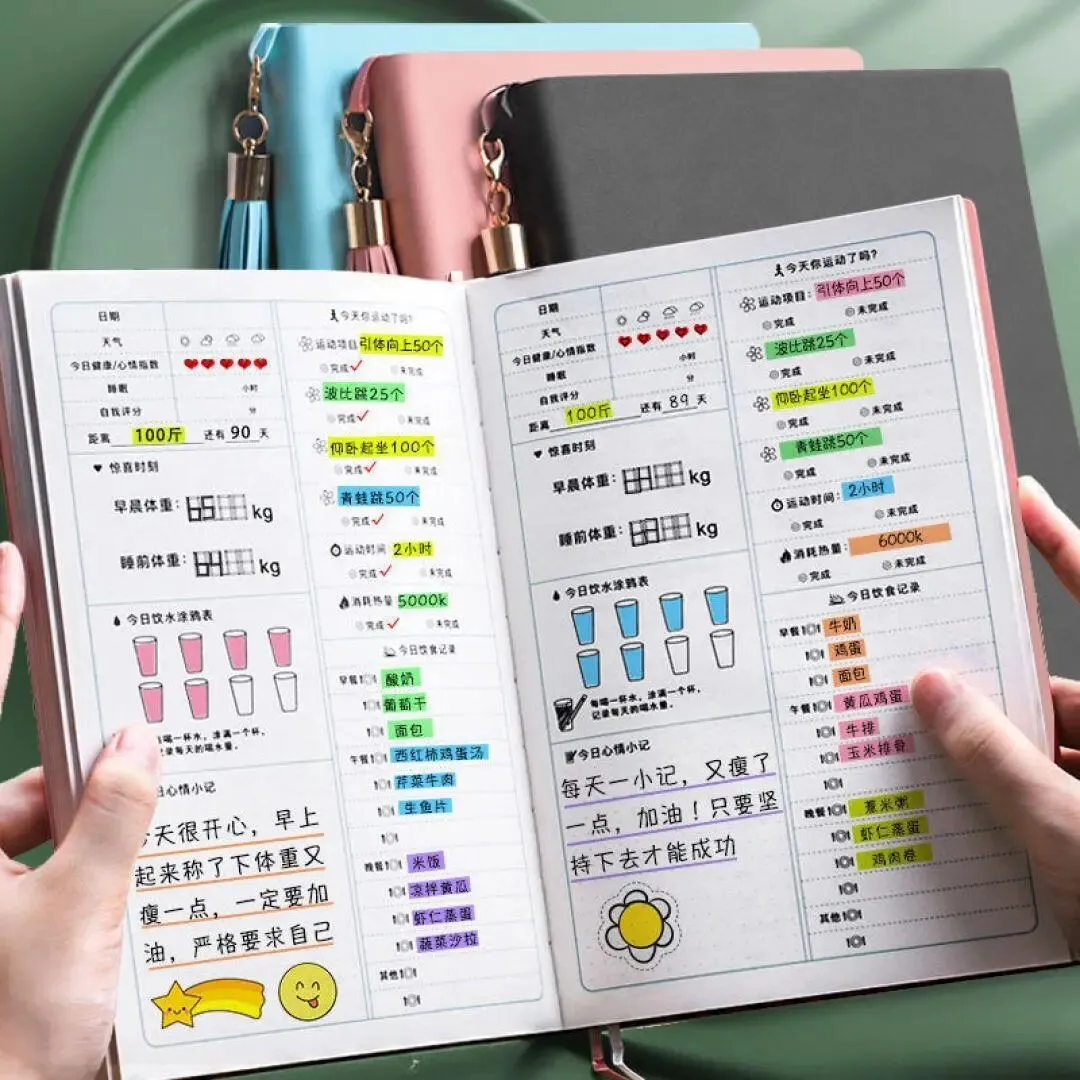 日期
天气
今日健康/心情指数
睡眠 小时
自我评分 分
距离 100斤 还有 90 天
惊喜时刻
早晨体重: 65 kg
睡前体重: 64 kg
今日饮水涂鸦表
喝一杯水,涂满一个杯,
记录每天的喝水量。
心情小记
天很开心,早上
起来称了下体重又
瘦一点,一定要加
油,严格要求自己
今天你运动了吗?
运动项目 引体向上50个
完成 未完成
波比跳25个
完成 未完成
仰卧起坐100个
完成 未完成
青蛙跳50个
完成 未完成
运动时间: 2小时
完成 未完成
消耗热量 5000k
完成 未完成
今日饮食记录
早餐 酸奶
葡萄干
面包
午餐 西红柿鸡蛋汤
芹菜牛肉
生鱼片
晚餐 米饭
凉拌黄瓜
虾仁蒸蛋
蔬菜沙拉
其他
日期
天气
今日健康/心情指数
睡眠 小时
自我评分 分
距离 100斤 还有 89 天
惊喜时刻
早晨体重: kg
睡前体重: kg
今日饮水涂鸦表
每喝一杯水,涂满一个杯,
记录每天的喝水量。
今日心情小记
每天一小记,又瘦了
一点,加油!只要坚
持下去才能成功
今天你运动了吗?
运动项目: 引体向上50个
完成 未完成
波比跳25个
完成 未完成
仰卧起坐100个
完成 未完成
青蛙跳50个
完成 未完成
运动时间: 2小时
完成 未完成
消耗热量: 6000k
完成 未完成
今日饮食记录
早餐 牛奶
鸡蛋
面包
午餐 黄瓜鸡蛋
牛排
玉米排骨
晚餐 薏米粥
虾仁蒸蛋
鸡肉卷
其他